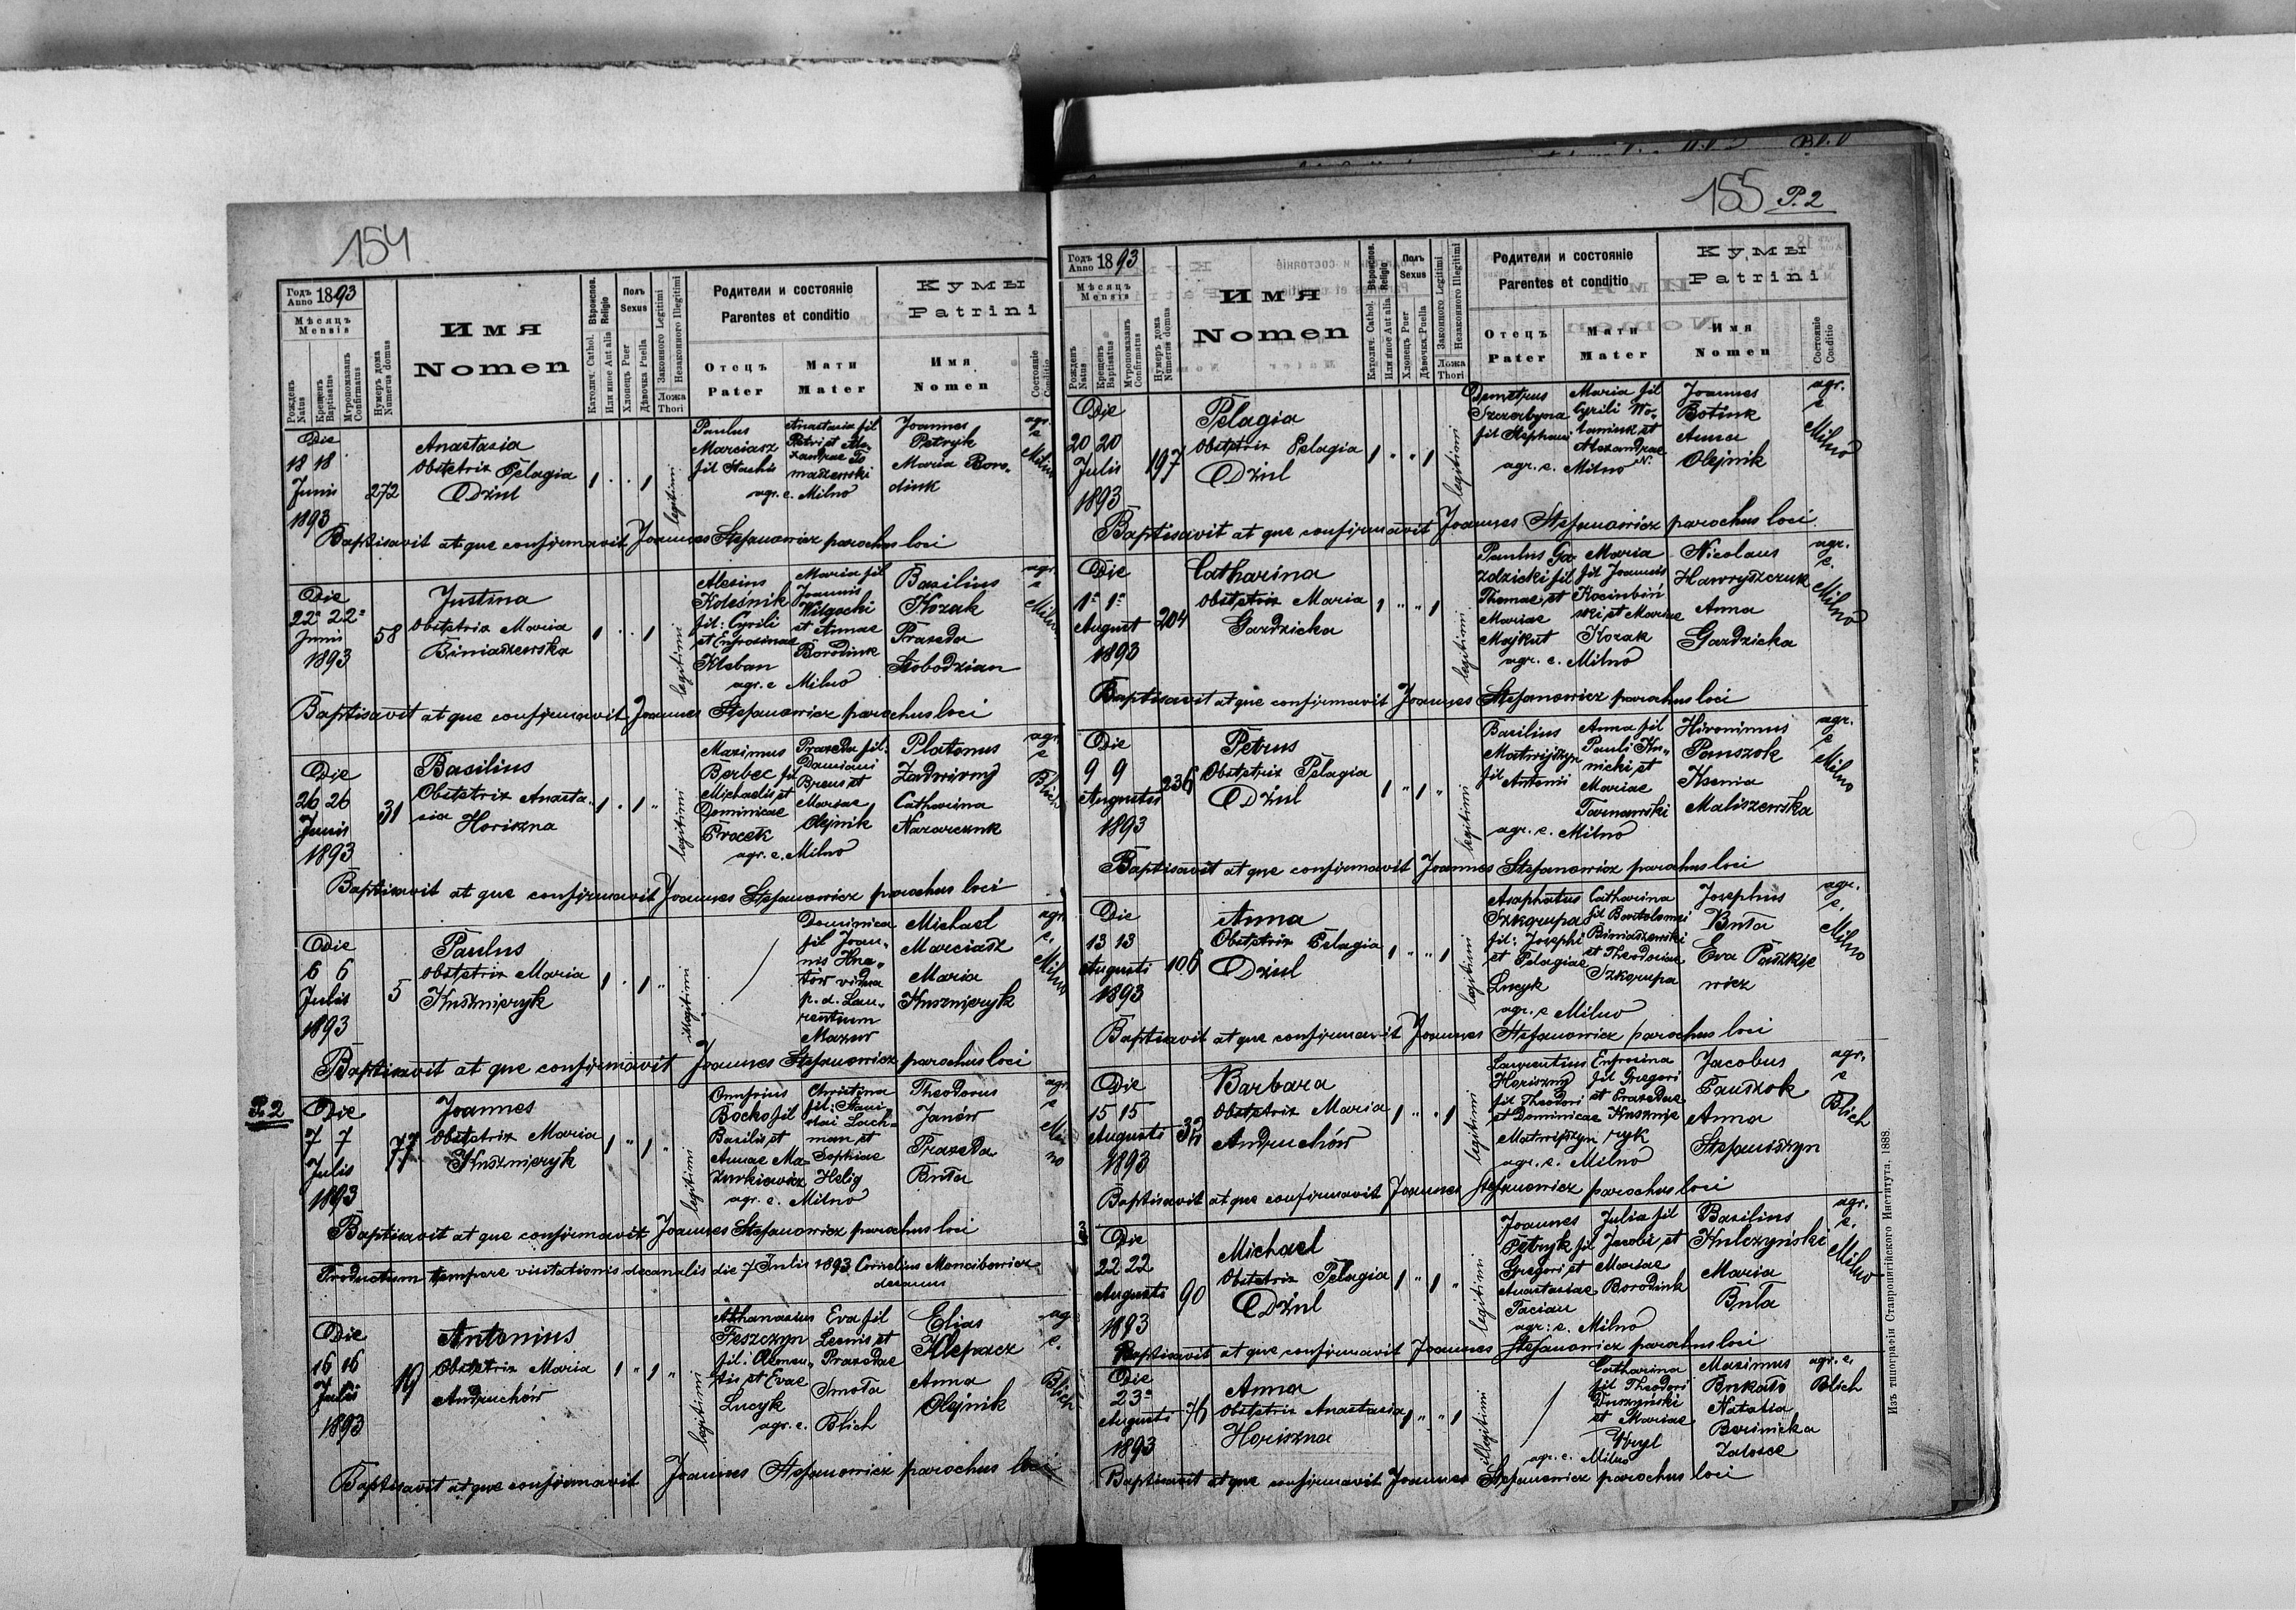 154
Годъ Anno 1893
Мѣсяцъ Mensis
Рожденъ Natus
Крещенъ Baptisatus
Муропомазанъ Confirmatus
Нумеръ дома Numerus domus
Имя
Nomen
Вѣроиспов. Religio
Католич. Cathol.
Или иное Aut alia
Полъ Sexus
Хлопецъ Puer
Дѣвочка Puella
Законного Legitimi
Незаконного Illegitimi
Ложа Thori
Родители и состояніе
Parentes et conditio
Отецъ
Pater
Мати
Mater
Кумы
Patrini
Имя
Nomen
Состояніе Conditio
Die
18 18
Junii
1893
272
Anastasia
Obstetrix Pelagia
Dziul
1 . . 1
legitimi
Paulus
Marciasz
fil Stachii
Anastasia fil
Petri et Ale-
xandrae To
maszewski
agr. e. Milno
Joannes
Petryk
Maria Boro-
diuk
agr.
e
Milno
Baptisavit atque confirmavit Joannes Stefanowicz parochus loci
Die
22 22
Junii
1893
58
Justina
Obstetrix Maria
Biniaszewska
1 . . 1
legitimi
Alexius
Koleśnik
fil: Cyrili
et Eufrosinae
Kleban
Maria fil
Joannis
Wilgocki
et Annae
Borodiuk
agr. e Milno
Basilius
Kozak
Praxeda
Słobodzian
agr.
e
Milno
Baptisavit atque confirmavit Joannes Stefanowicz parochus loci
Die
26 26
Junii
1893
31
Basilius
Obstetrix Anasta-
sia Horiszna
1 . 1 "
legitimi
Maximus
Berbec fil
Michaelis et
Dominicae
Procek
Praxeda fil:
Damiani
Breus et
Mariae
Olejnik
agr. e. Milno
Platonus
Zadwirny
Catharina
Nazarczuk
agr.
e
Blich
Baptisavit atque confirmavit Joannes Stefanowicz parochus loci
Die
6 6
Julii
1893
5
Paulus
Obstetrix Maria
Kuśznieryk
1 . 1 "
illegitimi
Dominica
fil Joan-
nis Kne-
tów vidua
p. d. Lau-
rentium
Mazur
Michael
Marciasz
Maria
Kuśznieryk
agr
e.
Milno
Baptisavit atque confirmavit Joannes Stefanowicz parochus loci
P. 2
Die
7 7
Julii
1893
77
Joannes
Obstetrix Maria
Kuśznieryk
1 " 1 "
legitimi
Onufrius
Bočko fil
Basilii et
Annae Ma-
zurkiewicz
Christina
fil: Stani-
slai Lach-
man et
Sophiae
Helig
agr. e. Milno
Theodorus
Janów
Praxeda
Buła
agr
e
Mil
no
Baptisavit atque confirmavit Joannes Stefanowicz parochus loci
Productum tempore visitationis decanalis die 7 Julii 1893 Cornelius Mencibowicz
decanus
Die
16 16
Julii
1893
19
Antonius
Obstetrix Maria
Andruchów
1 " 1 "
legitimi
Athanasius
Feszczyn
fil: Clemen-
tis et Evae
Lucyk
Eva fil
Leonis et
Praxedae
Smoła
agr. e. Blich
Elias
Klepacz
Anna
Olejnik
ag
e.
Blich
Baptisavit atque confirmavit Joannes Stefanowicz parochus loci
155 P. 2
Годъ Anno 1893
Мѣсяцъ Mensis
Рожденъ Natus
Крещенъ Baptisatus
Муропомазанъ Confirmatus
Нумеръ дома Numerus domus
Имя
Nomen
Вѣроиспов. Religio
Католич. Cathol.
Или иное Aut alia
Полъ Sexus
Хлопецъ Puer
Дѣвочка Puella
Законного Legitimi
Незаконного Illegitimi
Ложа Thori
Родители и состояніе
Parentes et conditio
Отецъ
Pater
Мати
Mater
Кумы
Patrini
Имя
Nomen
Состояніе Conditio
Die
20 20
Julii
1893
197
Pelagia
Obstetrix Pelagia
Dziul
1 " " 1
legitimi
Demetrius
Szczerbyna
fil Stephani
Maria fil
Cyrili Wo-
laniuk et
Alexandrae
N.
agr. e. Milno
Joannes
Botiuk
Anna
Olejnik
agr.
e
Milno
Baptisavit atque confirmavit Joannes Stefanowicz parochus loci.
Die
1 1
August
1893
204
Catharina
Obstetrix Maria
Gazdzicka
1 " " 1
legitimi
Paulus Ga-
zdzicki fil
Thomae et
Mariae
Majkut
Maria
fil Joannis
Kocinbiń
ski et Mariae
Kozak
agr. e. Milno
Nicolaus
Hawryszczuk
Anna
Gazdzicka
agr.
e.
Milno
Baptisavit atque confirmavit Joannes Stefanowicz parochus loci
Die
9 9
Augusti
1893
236
Petrus
Obstetrix Pelagia
Dziul
1 " 1 "
legitimi
Basilius
Matwijszyn
fil Antonii
Anna fil
Pauli Ku-
nicki et
Mariae
Tarnawski
agr. e. Milno
Hironimus
Pauszok
Ksenia
Maliszewska
agr.
e
Milno
Baptisavit atque confirmavit Joannes Stefanowicz parochus loci
Die
13 13
Augusti
1893
106
Anna
Obstetrix Pelagia
Dziul
1 " " 1
legitimi
Asaphatus
Szkorupa
fil: Josephi
et Pelagiae
Lucyk
Catharina
fil Bartolomei
Biniaszewski
et Theodoriae
Szkorupa
agr. e Milno
Josephus
Buła
Eva Paszkie
wicz
agr.
e.
Milno
Baptisavit atque confirmavit Joannes Stefanowicz parochus loci
Die
15 15
Augusti
1893
32
Barbara
Obstetrix Maria
Andruchów
1 " " 1
legitimi
Laurentius
Horiszny
fil Theodori
et Dominicae
Matwijszyn
Eufrosina
fil Gregori
et Praxedae
Kusznie
ryk
agr. e. Milno
Jacobus
Pauszok
Anna
Stefaniszyn
agr.
e
Blich
Baptisavit atque confirmavit Joannes Stefanowicz parochus loci
Die
22 22
Augusti
1893
90
Michael
Obstetrix Pelagia
Dziul
1 " 1 "
legitimi
Joannes
Petryk fil
Gregori et
Anastasiae
Pacian
Julia fil
Jacobi et
Mariae
Borodiuk
agr: e. Milno
Basilius
Kulczyński
Maria
Buła
agr.
e.
Milno
Baptisavit atque confirmavit Joannes Stefanowicz parochus loci
Die
23
Augusti
1893
76
Anna
Obstetrix Anastasia
Horiszna
1 " " 1
illegitimi
Catharina
fil Theodori
Duszyński
et Mariae
Wryl
agr. e. Milno
Maximus
Bukało
Natalia
Berinicka
Załosce
agr. e.
Blich
Baptisavit atque confirmavit Joannes Stefanowicz parochus loci
Изъ типографіи Ставропигійского Института. 1888.